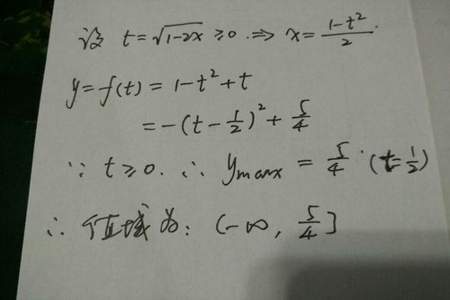 设 t=√(1-2x) ≥0. ⇒ x=(1-t²)/2.
y=f(t)=1-t²+t
=-(t-1/2)²+5/4
∵ t≥0. ∴ ymax=5/4.(t=1/2)
∴ 值域为: (-∞, 5/4]